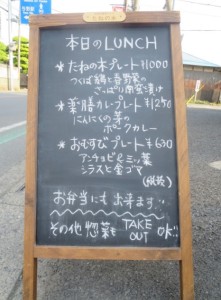 本日のLUNCH
★たねの木プレート¥1000
つくば鶏と春野菜の
さっぱり南蛮漬け
★薬膳カレープレート¥1250
にんにくの芽の
ポークカレー
★おむすびプレート¥630
アンチョビと三ッ葉
シラスと金ゴマ
お弁当にも出来ます
その他惣菜も TAKE OUT OK!!